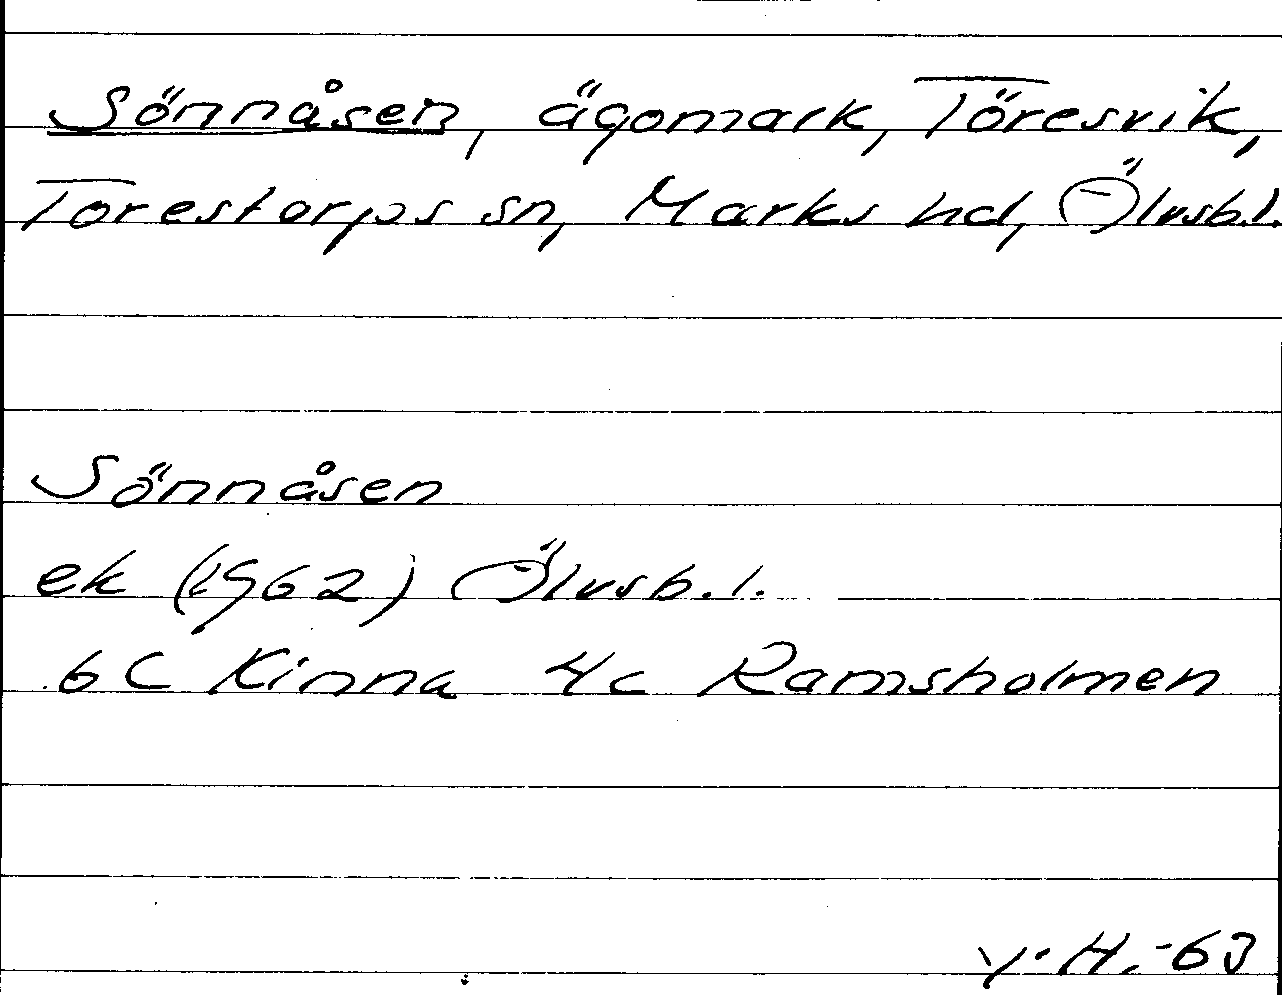 Sönnåsen, ägomark, Töresvik,
Torestorps sn, Marks hd, Älvsb.l.
Sönnåsen
ek (1962) Älvsb.l.
6C Kinna 4c Ramsholmen
Y.H. -63